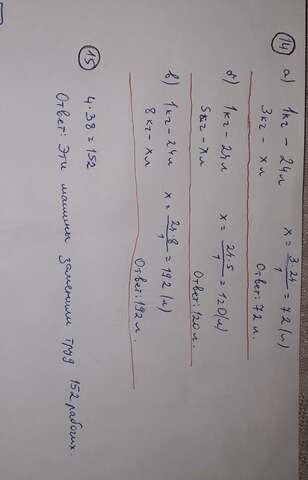 14 а) 1кг - 24л x = 3·24/1 = 72 (л)
3кг - xл Ответ: 72 л.
б) 1кг - 24л x = 24·5/1 = 120(л)
5кг - xл Ответ: 120л.
в) 1кг - 24л x = 24·8/1 = 192 (л)
8кг - xл Ответ: 192 л.
15
4·38 = 152
Ответ: Эти машины заменили труд 152 рабочих.